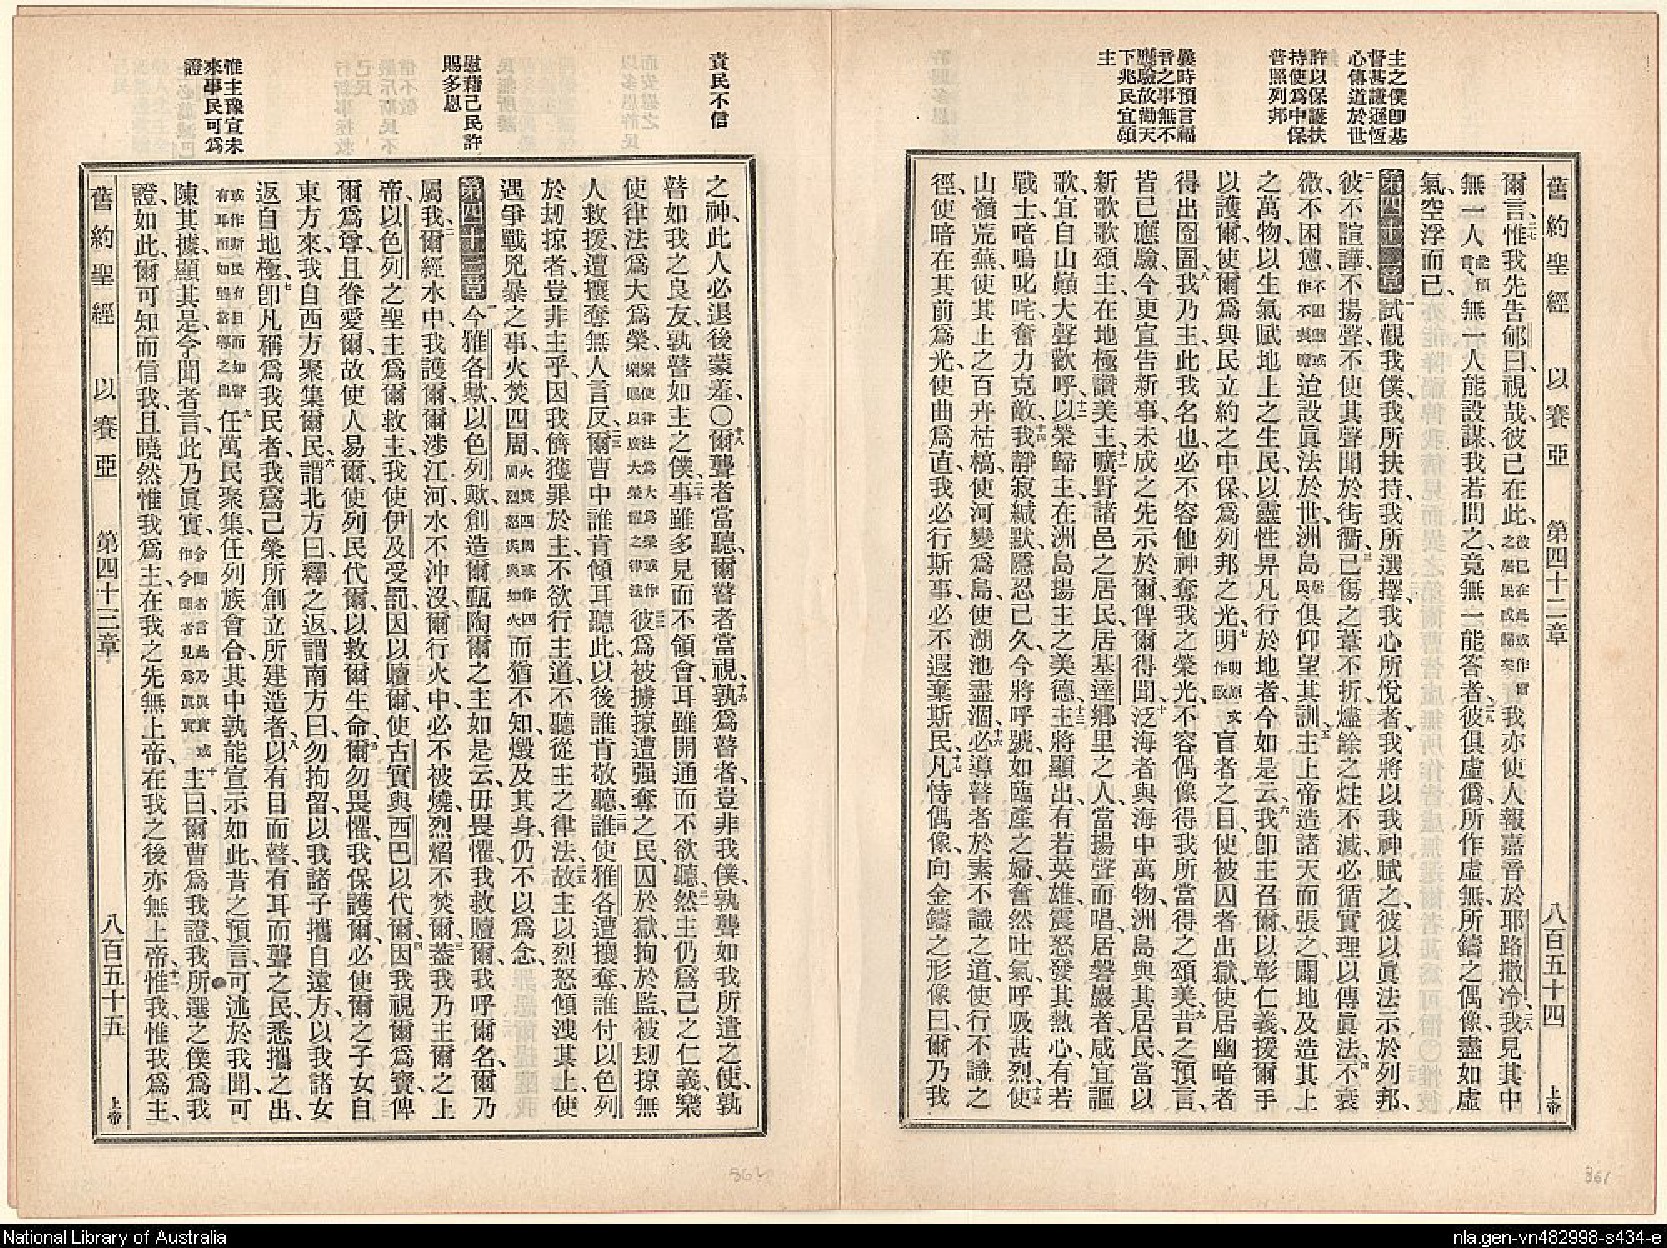 主之僕卽基
督甚謙遜恆
心傳道於世
許以保護扶
持使爲中保
普照列邦
曩時預言福
音之事無不
應驗故勸天
下兆民宜頌
主
舊約聖經 以賽亞 第四十二章 八百五十四 上帝
爾言、二七惟我先告郇曰、視哉、彼已在此、彼已在此或作爾之居民或歸矣我亦使人報嘉音於耶路撒冷、二八我見其中
無一人、無一人能設謀、我若問之、竟無一能答者、二九彼俱虛僞、所作虛無、所鑄之偶像、盡如虛
氣空浮而已、
第四十二章 一試觀我僕、我所扶持、我所選擇、我心所悅者、我將以我神賦之、彼以眞法示於列邦、
二彼不諠譁、不揚聲、不使其聲聞於街衢、三已傷之葦不折、燼餘之炷不滅、必循實理以傳眞法、四不衰
微、不困憊、迨設眞法於世、洲島居民俱仰望其訓、五主上帝造諸天而張之、闢地及造其上
之萬物、以生氣賦地上之生民、以靈性畀凡行於地者、今如是云、六我卽主、召爾以彰仁義、援爾手
以護爾、使爾爲與民立約之中保、爲列邦之光明、七使盲者之目、使被囚者出獄、使居幽暗者
得出囹圄、八我乃主、此我名也、必不容他神奪我之榮光、不容偶像得我所當得之頌美、九昔之預言、
皆已應驗、今更宣告新事、未成之先示於爾、俾爾得聞、十泛海者與海中萬物、洲島與其居民、當以
新歌歌頌主、在地極讚美主、十一曠野諸邑之居民、居基達鄉里之人、當揚聲而唱、居磐巖者、咸宜謳
歌、宜自山巔大聲歡呼、十二以榮歸主、在洲島揚主之美德、十三主將顯出、有若英雄、震怒發其熱心、有若
戰士、喑嗚叱咤、奮力克敵、十四我靜寂緘默隱忍已久、今將呼號如臨產之婦、奮然吐氣、呼吸甚烈、十五使
山嶺荒蕪、使其上之百卉枯槁、使河變爲島、使湖池盡涸、十六必導瞽者於素不識之道、使行不識之
徑、使暗在其前爲光、使曲爲直、我必行斯事、必不遐棄斯民、十七凡恃偶像、向金鑄之形像曰、爾乃我
責民不信
慰藉己民許
賜多恩
惟主豫宣未
來事民可爲
證
之神、此人必退後蒙羞、〇十八爾聾者當聽、爾瞽者當視、十九孰爲瞽者、豈非我僕、孰聾如我所遣之使、孰
瞽如我之良友、孰瞽如主之僕、二十事雖多見而不領會、耳雖開通而不欲聽、二一然主仍爲己之仁義、樂
使律法爲大爲榮、樂使律法爲大爲榮或作樂賜以廣大榮耀之律法二二彼爲被擄掠遭强奪之民、囚於獄、拘於監、被刧掠無
人救援、遭攘奪無人言反、二三爾曹中誰肯傾耳聽此、以後誰肯敬聽、二四誰使雅各遭攘奪、誰付以色列
於刧掠者、豈非主乎、因我儕獲罪於主、不欲行主道、不聽從主之律法、二五故主以烈怒傾洩其上、使
遇爭戰兇暴之事、火焚四周、火焚四周或作四周烈怒炎炎如火而猶不知、燬及其身、仍不以爲念、
第四十三章 一今雅各歟、以色列歟、創造爾甄陶爾之主如是云、毋畏懼、我救贖爾、我呼爾名、爾乃
屬我、二爾經水中、我護爾、爾涉江河、水不沖沒爾、行火中、必不被燒、烈焰不焚爾、三蓋我乃主爾之上
帝、以色列之聖主、爲爾救主、我使伊及受罰、因以贖爾、使古實與西巴以代爾、四因我視爾爲寶、俾
爾爲尊、且眷愛爾、故使人易爾、使列民代爾、以救爾生命、五爾勿畏懼、我保護爾、必使爾之子女自
東方來、我自西方聚集爾民、六謂北方曰、釋之返、謂南方曰、勿拘留、以我諸子攜自遠方、以我諸女
返自地極、七卽凡稱爲我民者、我爲己榮所創立所建造者、八以有目而瞽、有耳而聾之民、悉攜之出、
或作斯民有目而如瞽有耳而如聾當導之出九任萬民聚集、任列族會合、其中孰能宣示如此、昔之預言、可述於我聞、可
陳其據、顯其是、令聞者言、此乃眞實、令聞者言此乃眞實或作令聞者見爲眞實十主曰、爾曹爲我證、我所選之僕爲我
證、如此、爾可知而信我、且曉然惟我爲主、在我之先無上帝、在我之後亦無上帝、十一惟我惟我爲主、
舊約聖經 以賽亞 第四十二章 八百五十五 上帝
862
861
National Library of Australia
nla.gen-vn482998-s434-e